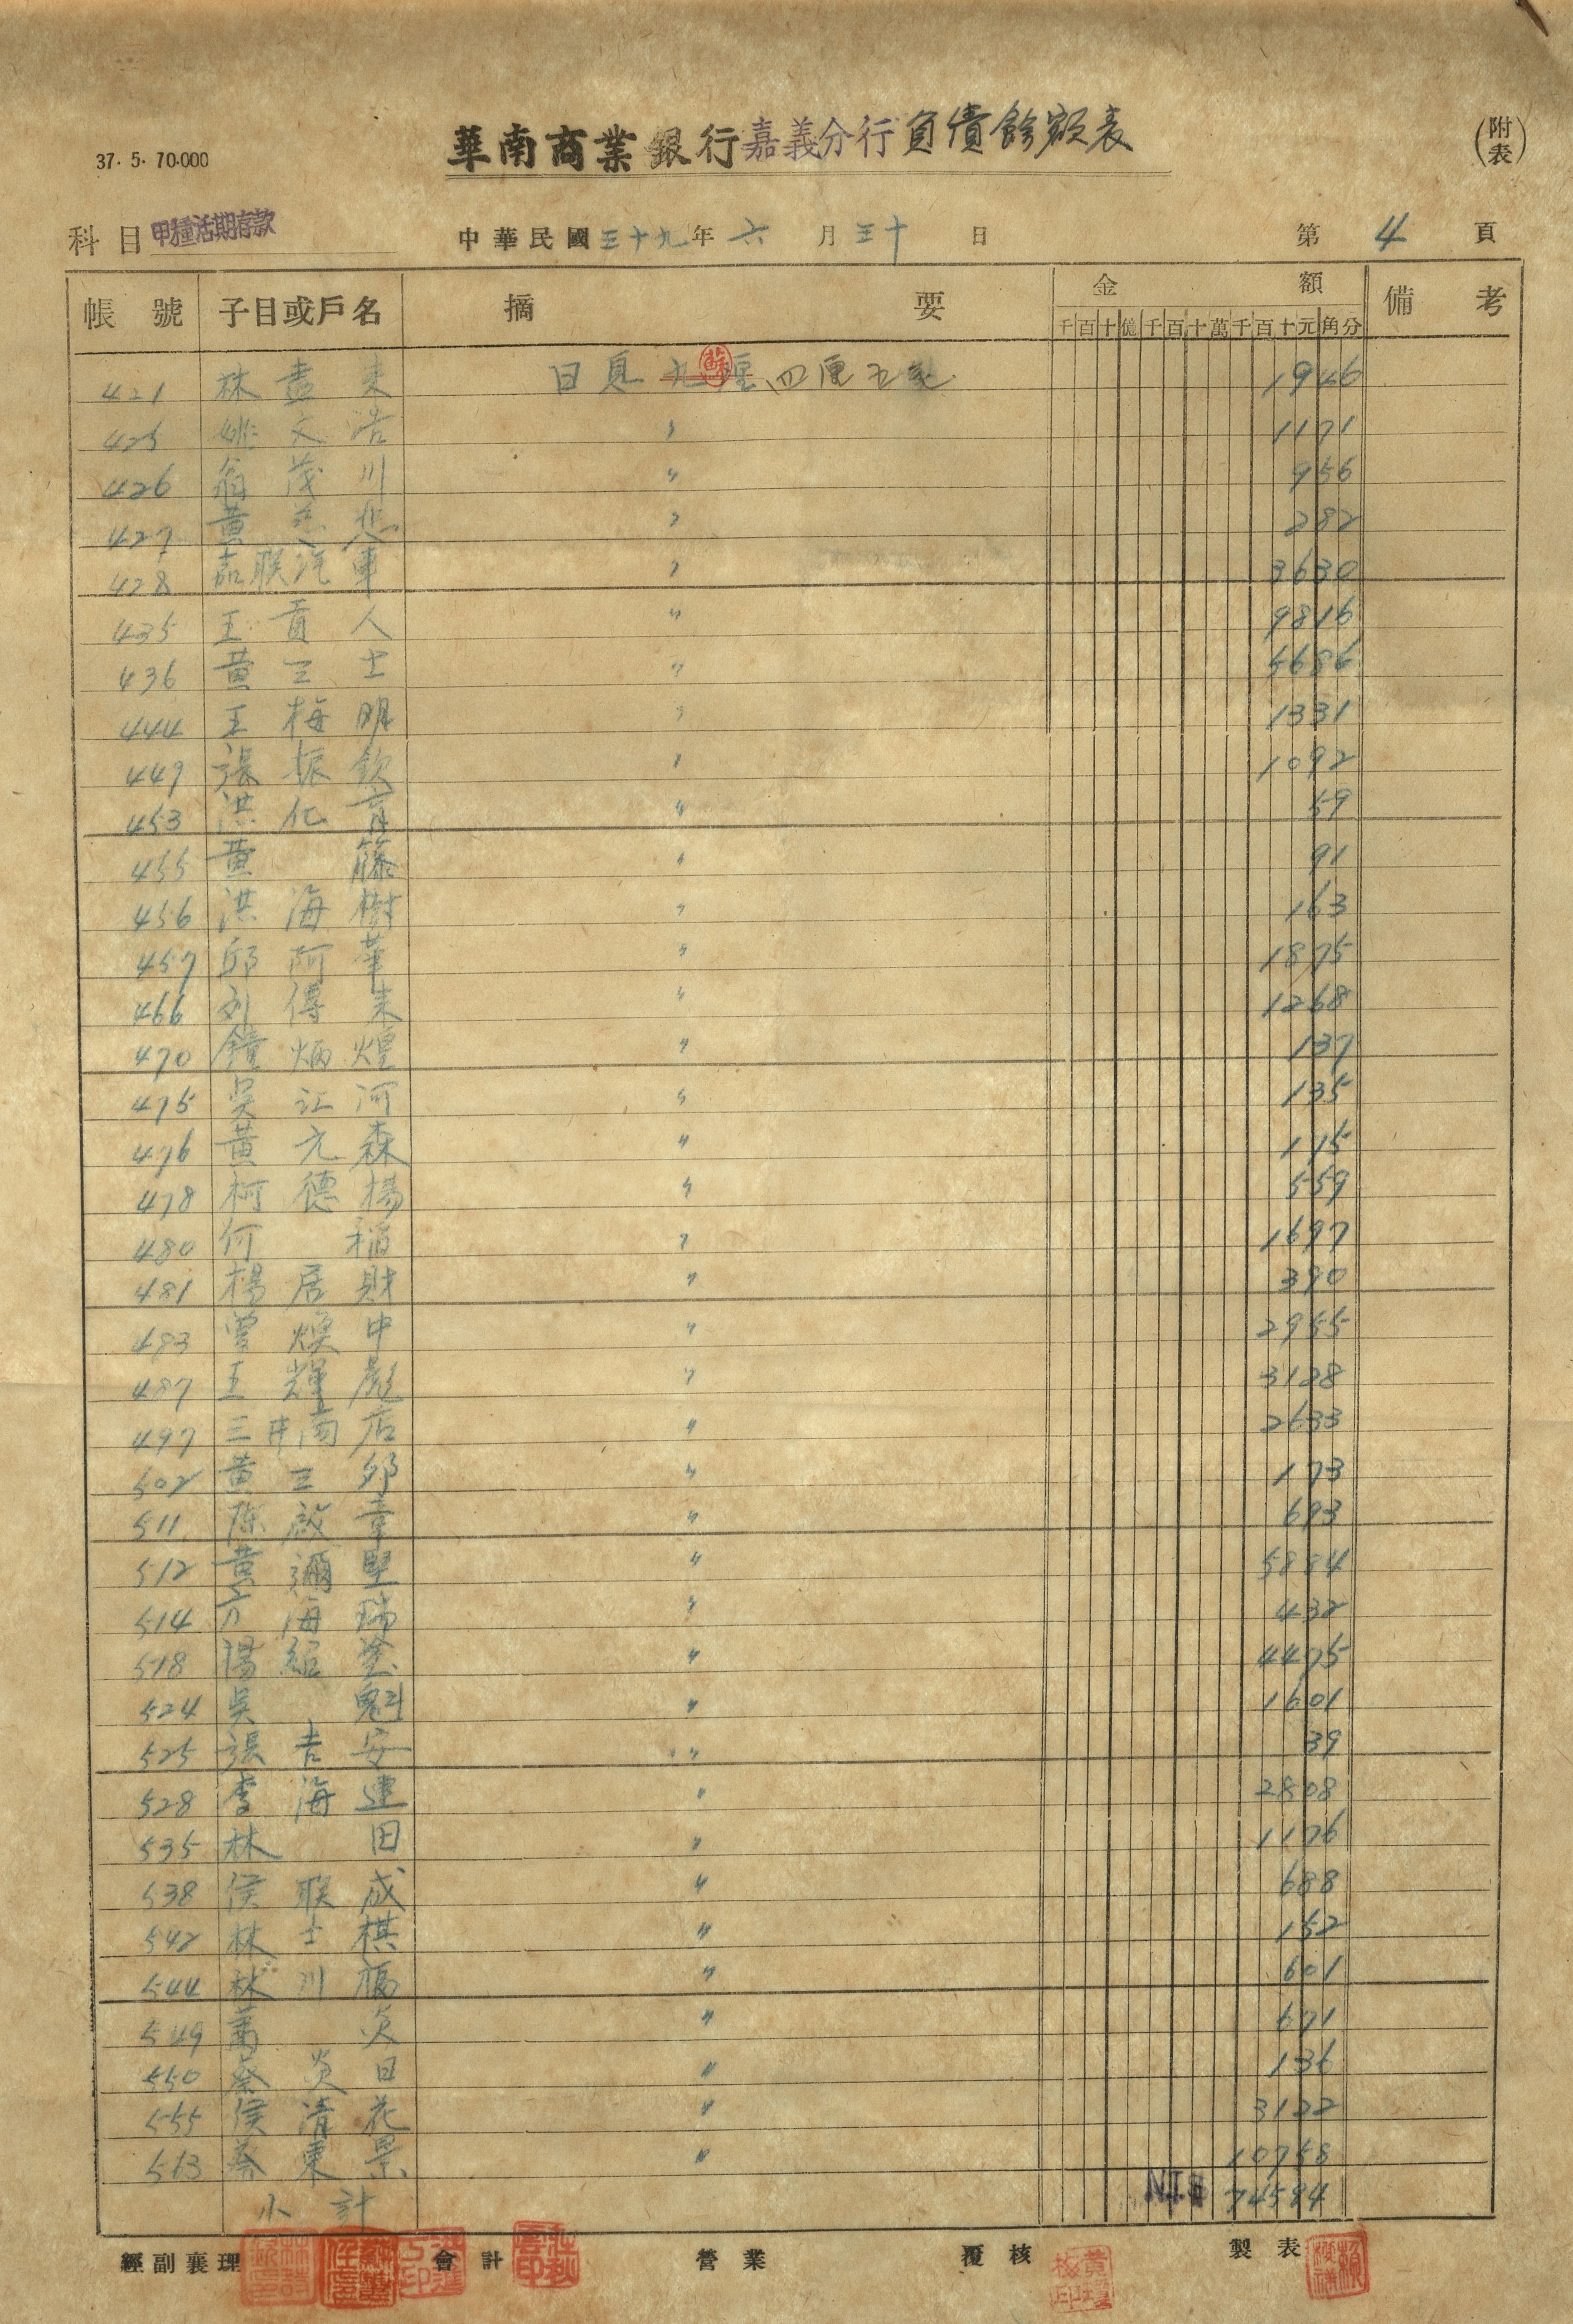 37. 5. 70.000
華南商業銀行嘉義分行負債餘額表
(附表)
科目 甲種活期存款 中華民國三十九年六月三十日 第4頁
帳號 子目或戶名 摘要 金額 備考
千百十億千百十萬千百十元角分
421 林盡来 日息 四厘五毫 1946
425 姚文浩 〃 1171
426 翁茂川 〃 956
427 黃慈悲 〃 282
428 嘉联汽車 〃 3630
435 王貢人 〃 9816
436 黃三士 〃 5686
444 王梅明 〃 1331
449 張振欽 〃 1092
453 洪化育 〃 59
455 黃藤 〃 91
456 洪海樹 〃 163
457 邱阿華 〃 1875
466 刘傳来 〃 1268
470 鐘炳煌 〃 137
475 吳江河 〃 135
476 黃元森 〃 175
478 柯德楊 〃 559
480 何稻 〃 1697
481 楊居財 〃 390
483 曾煥中 〃 2955
487 王輝彪 〃 3128
497 三井商店 〃 2633
502 黃三郎 〃 173
511 陈啟章 〃 693
512 黃彌堅 〃 5884
514 方海瑞 〃 432
518 楊紹塗 〃 4475
524 吳魁 〃 1601
525 張吉安 〃 39
528 李海連 〃 2808
535 林田 〃 1176
538 侯联成 〃 688
542 林士棋 〃 152
544 林川福 〃 601
549 萬炎 〃 671
550 蔡炎日 〃 136
555 侯清花 〃 3122
563 蔡東景 〃 10758
小計 74584
經副襄理 會計 營業 覆核 製表